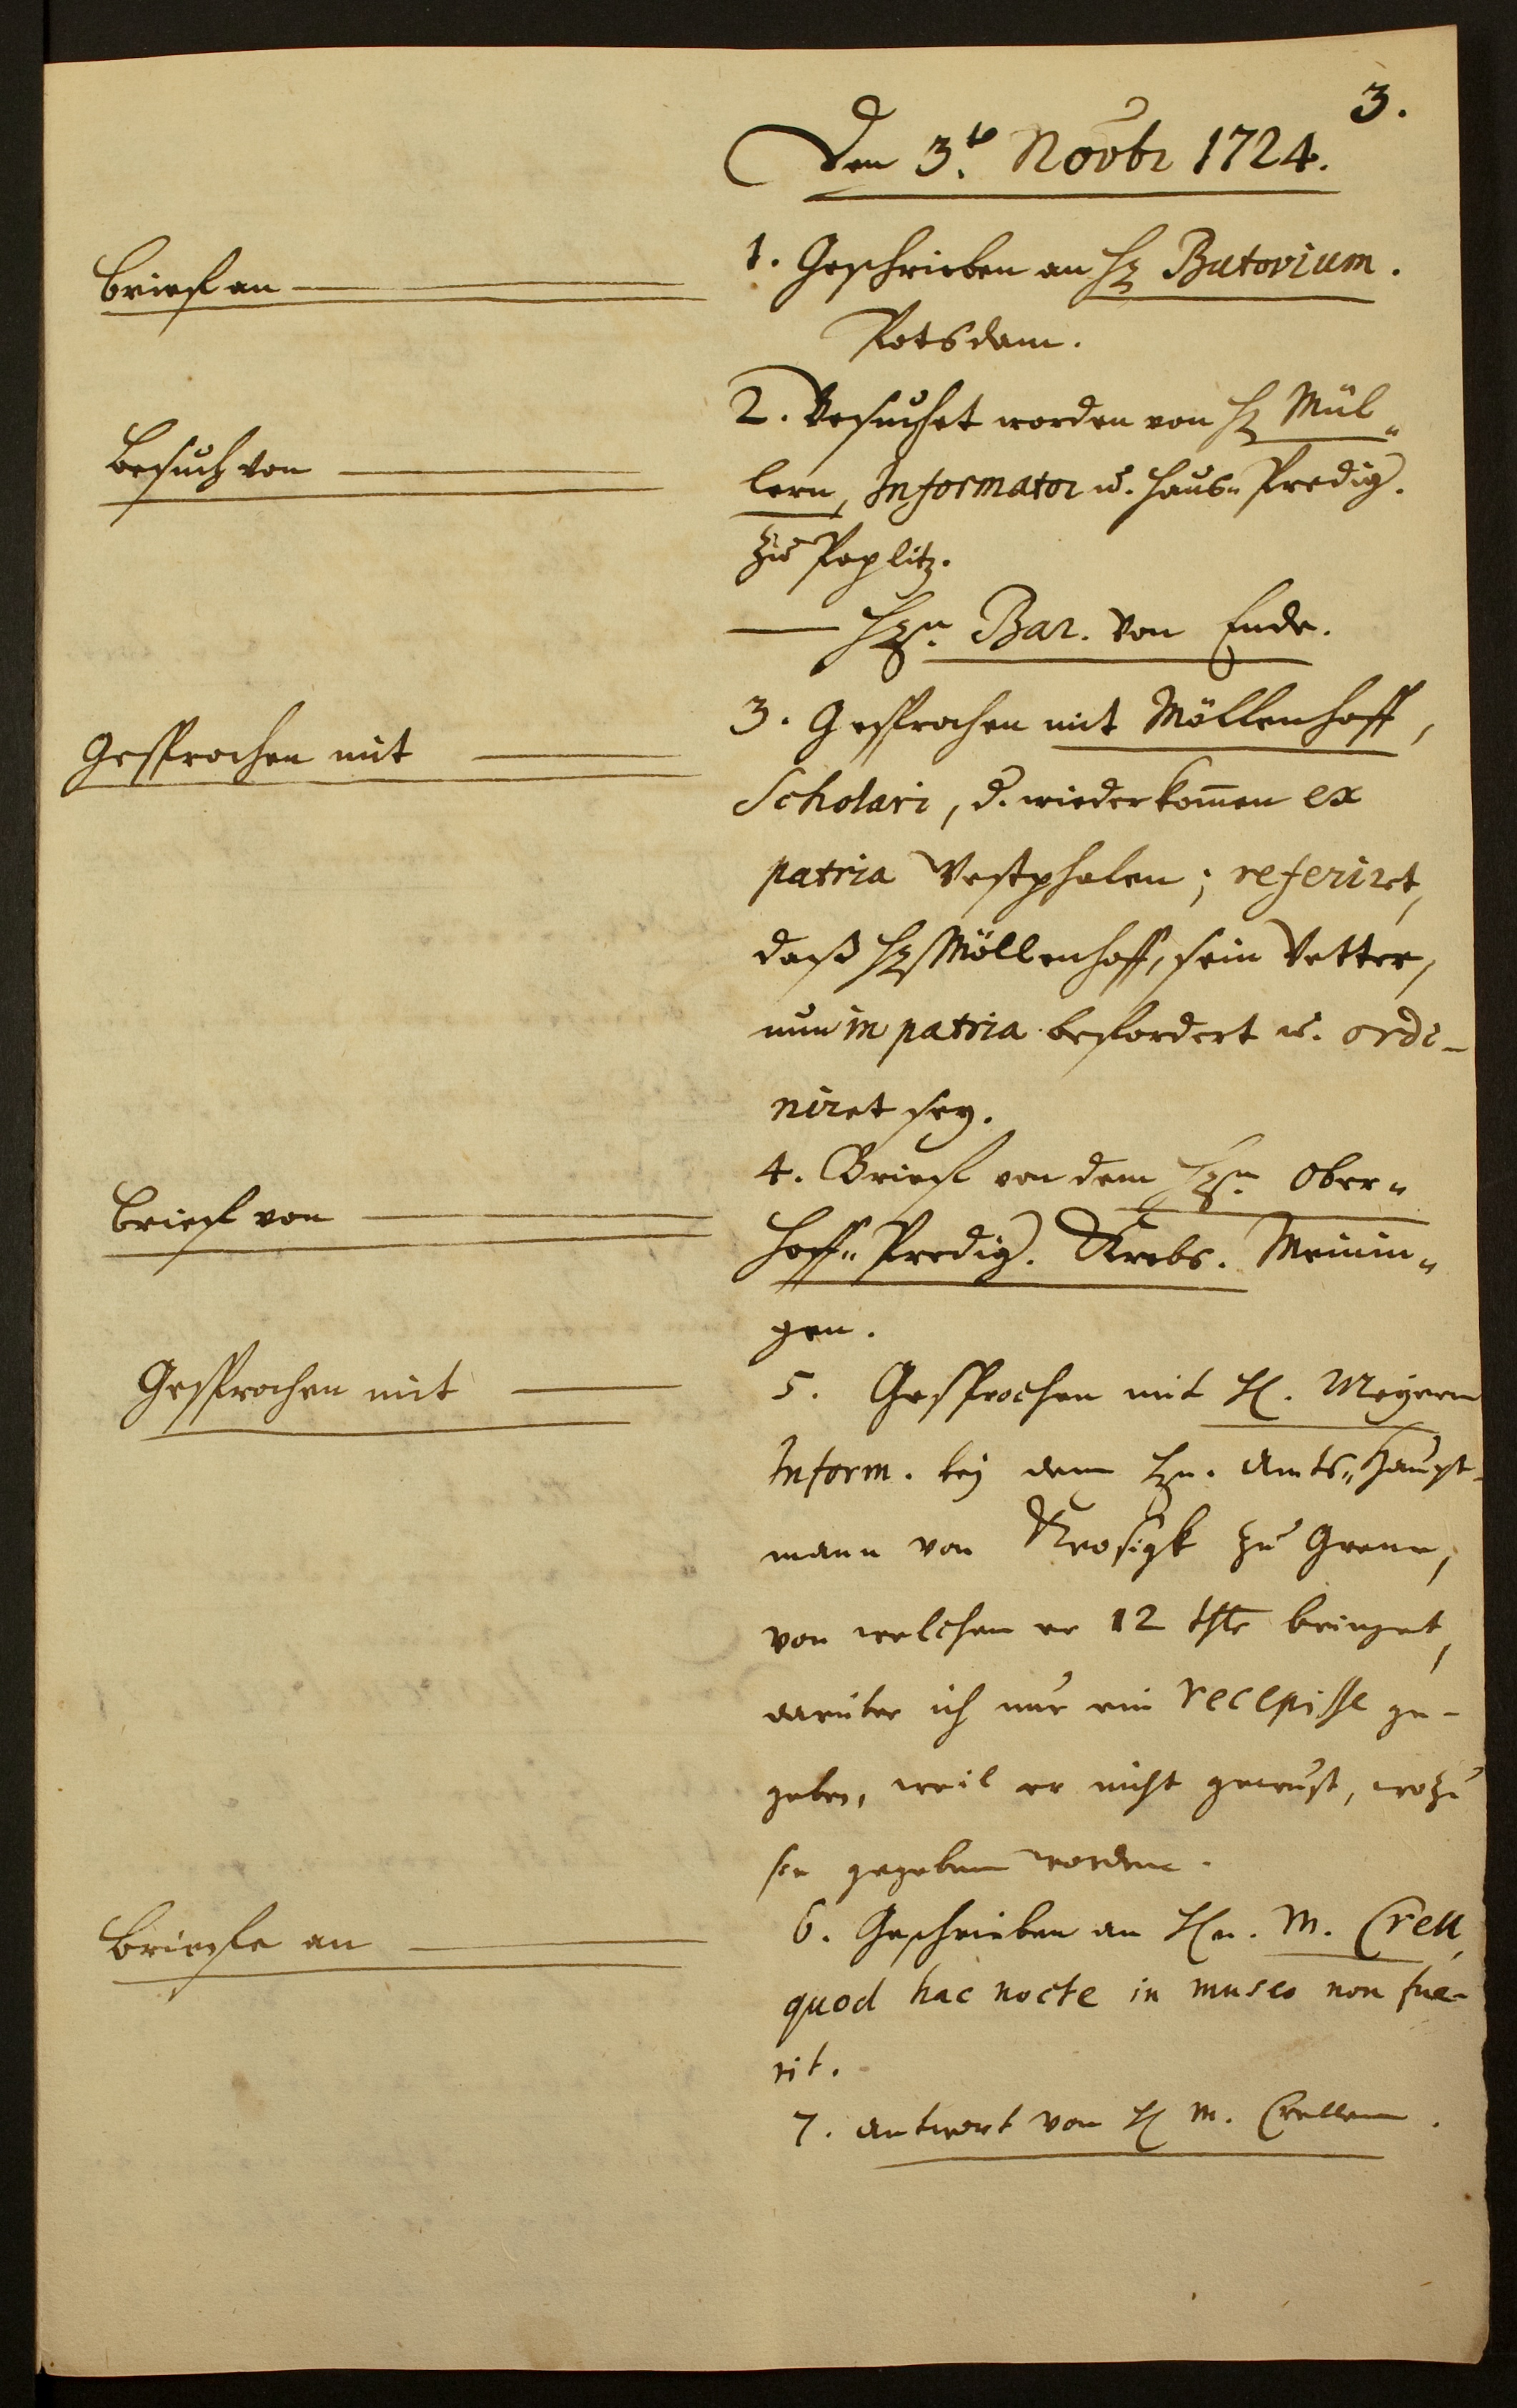 3.
Den 3.t Novbr 1724.
Brief an
1. Geschrieben an H. Butovium.
Potsdam.
Besuch von
2. Besuchet worden von H. Mül-
lern, Informator u. Haus-Predig.
zu Poplitz.
— Hrn. Bar. von Ende.
Gesprochen mit
3. Gesprochen mit Möllenhoff,
Scholari, d. wiederkom̄en ex
patria Westphalen; referiret,
daß H. Möllenhoff, sein Vetter,
nun in patria befordert u. ordi-
niret sey.
Brief von
4. Brief von dem Hrn. Ober-
hoff-Predig. Krebs. Meinin-
gen.
Gesprochen mit
5. Gesprochen mit H. Meyern
Inform. bey dem Hn. Amts-Haupt-
mann von Krosigk zu
von welchem er 12 thlr bringet,
darüber ich nur ein recepisse ge-
geben, weil er nicht gewust, wozu
sie gegeben worden.
Briefe an
6. Geschrieben an Hn. M. Crell,
quod hac nocte in museo non fue-
rit.
7. Antwort von H. M. Crellen.